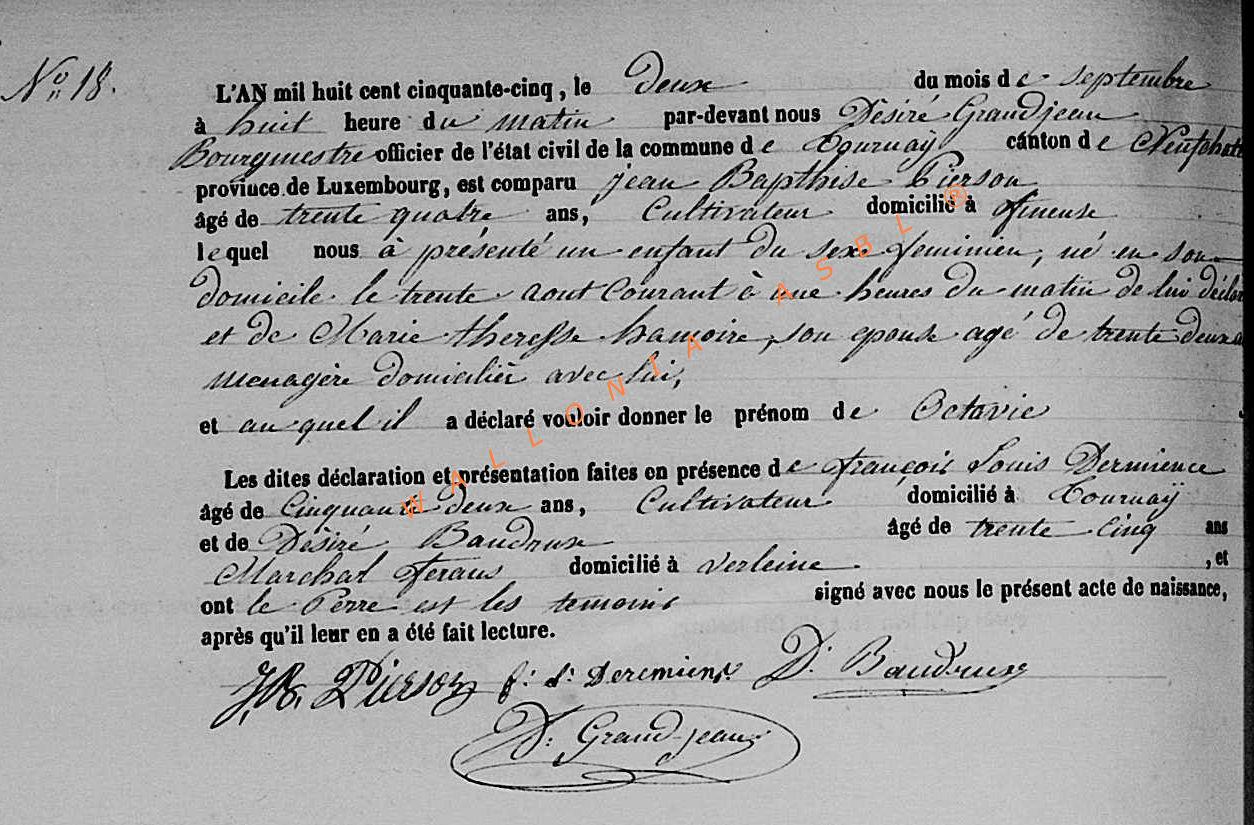 No 18.
L'AN mil huit cent cinquante-cinq, le deux du mois de septembre
à huit heure du matin par-devant nous Désiré Grandjean
Bourgmestre officier de l'état civil de la commune de Tournaÿ canton de Neufchate
province de Luxembourg, est comparu jean Bapthise Pierson
âgé de trente quatre ans, Cultivateur domicilié à offneuse
lequel nous à présenté un enfant du sexe feminien, né en son
domicile le trente aout Courant à une heures du matin de lui déclar
et de Marie theresse hamoire, son epouse agé de trente deux a
menagère domicilièr avec lui,
et au quel il a déclaré vouloir donner le prénom de Octavie
Les dites déclaration et présentation faites en présence de françois Louis Dermience
âgé de Cinquante deux ans, Cultivateur domicilié à Tournaÿ
et de Désiré Baudrux âgé de trente Cinq ans
Marchal feraus domicilié à verleine , et
ont le Perre est les temoins signé avec nous le présent acte de naissance,
après qu'il leur en a été fait lecture.
J,B, Pierson f: l: Deremiens D: Baudrux
D: Grand-jean
WALLONIA ASBL ®